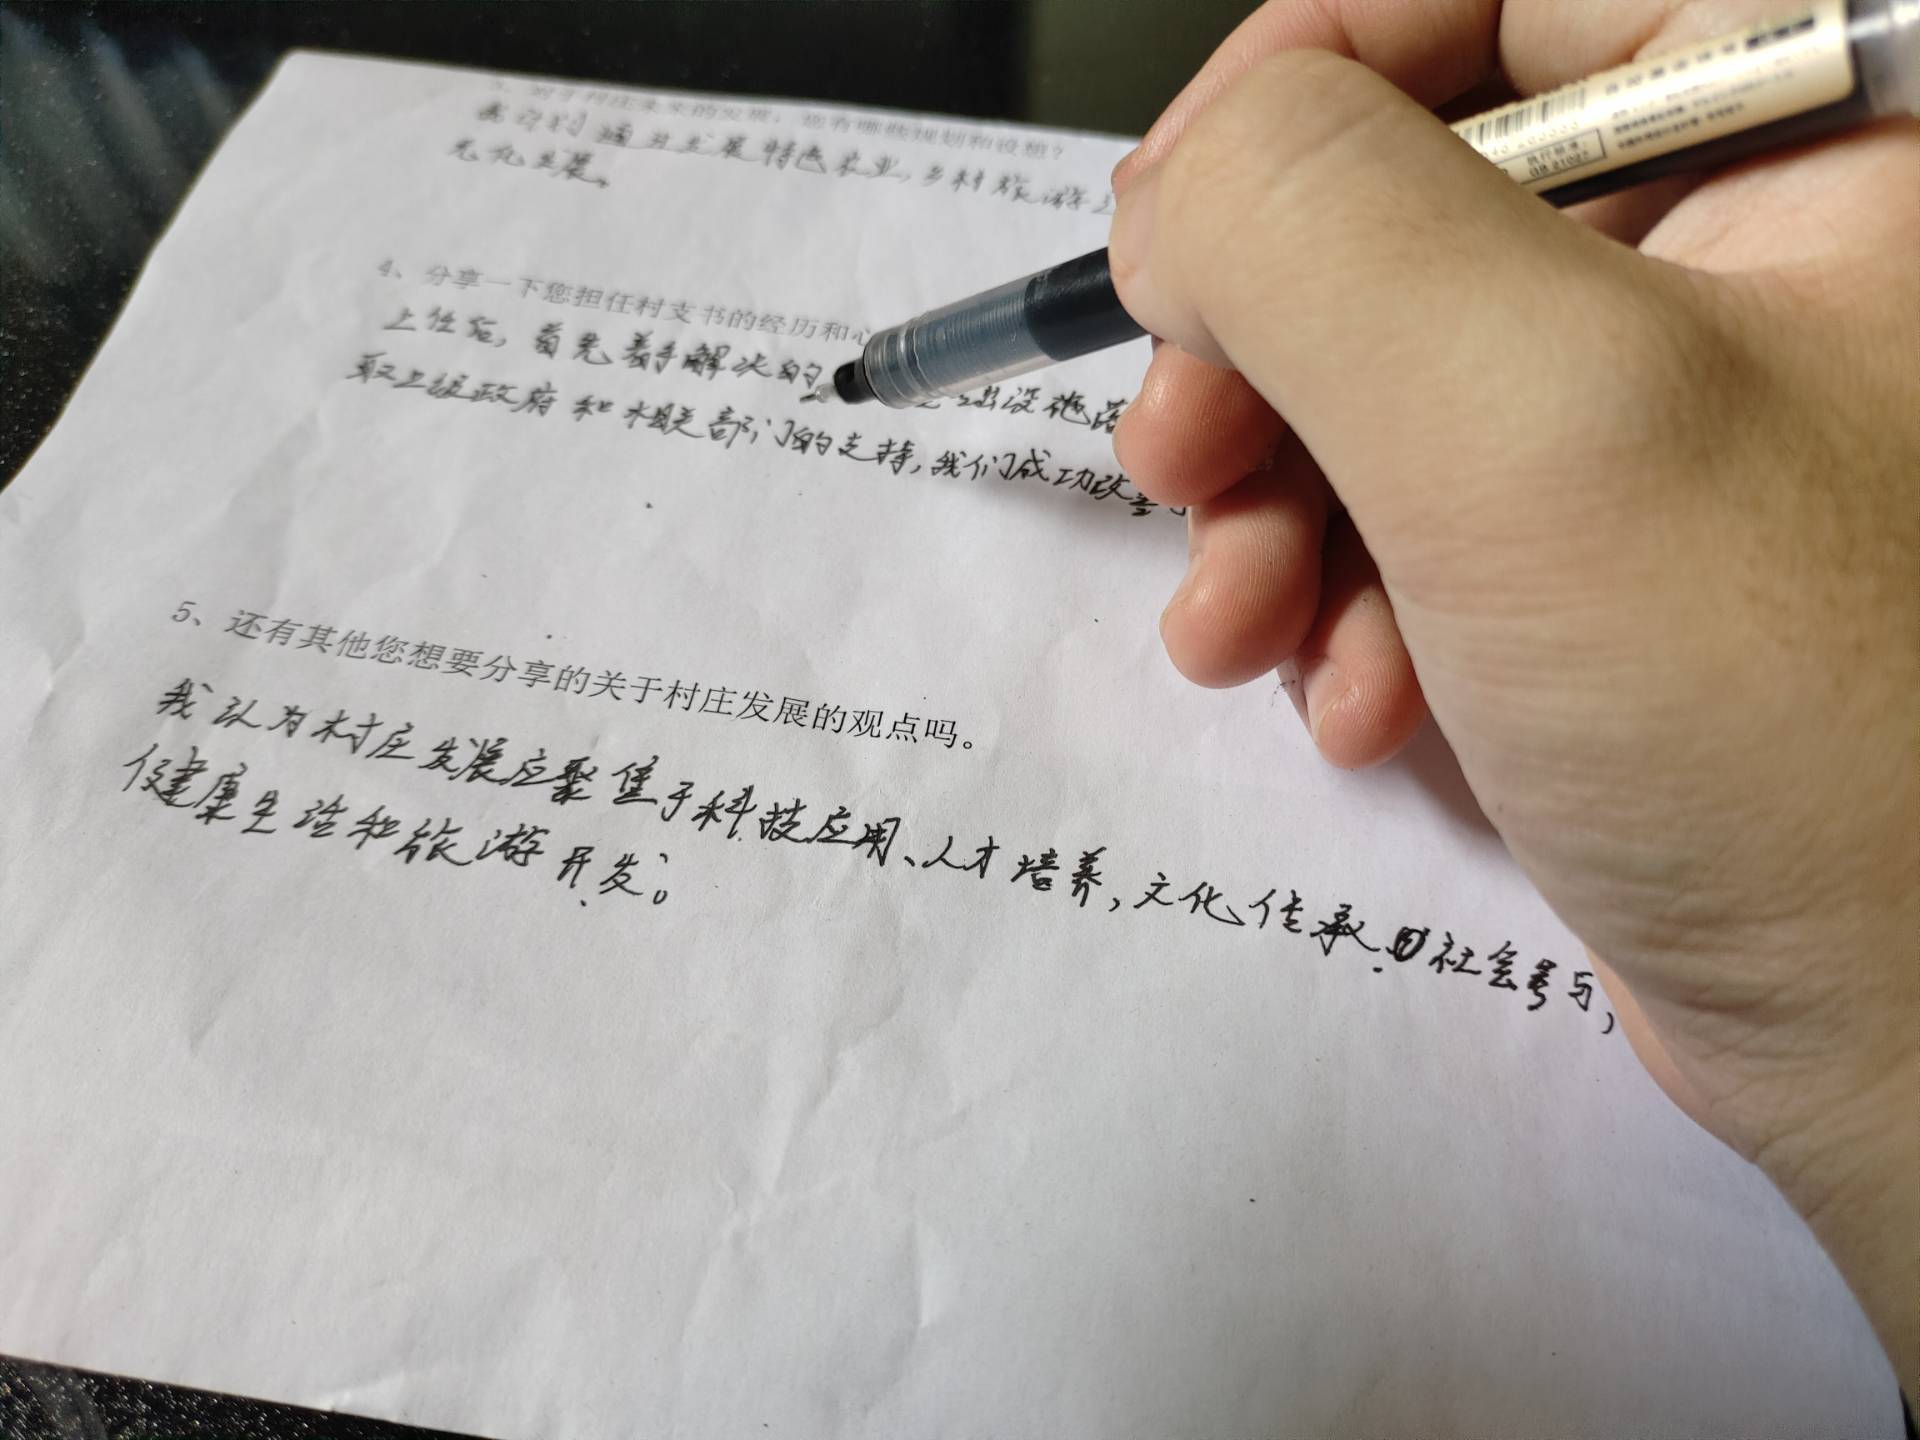 3、对于村庄未来的发展，您有哪些规划和设想？
我计划通过发展特色农业，乡村旅游
元化发展。
4、分享一下您担任村支书的经历和心
上任后，首先着手解决的 设施落
取上级政府和相关部门的支持，我们成功改善了
5、还有其他您想要分享的关于村庄发展的观点吗。
我认为村庄发展应聚焦于科技应用、人才培养，文化传承 社会参与，
健康生活和旅游开发。